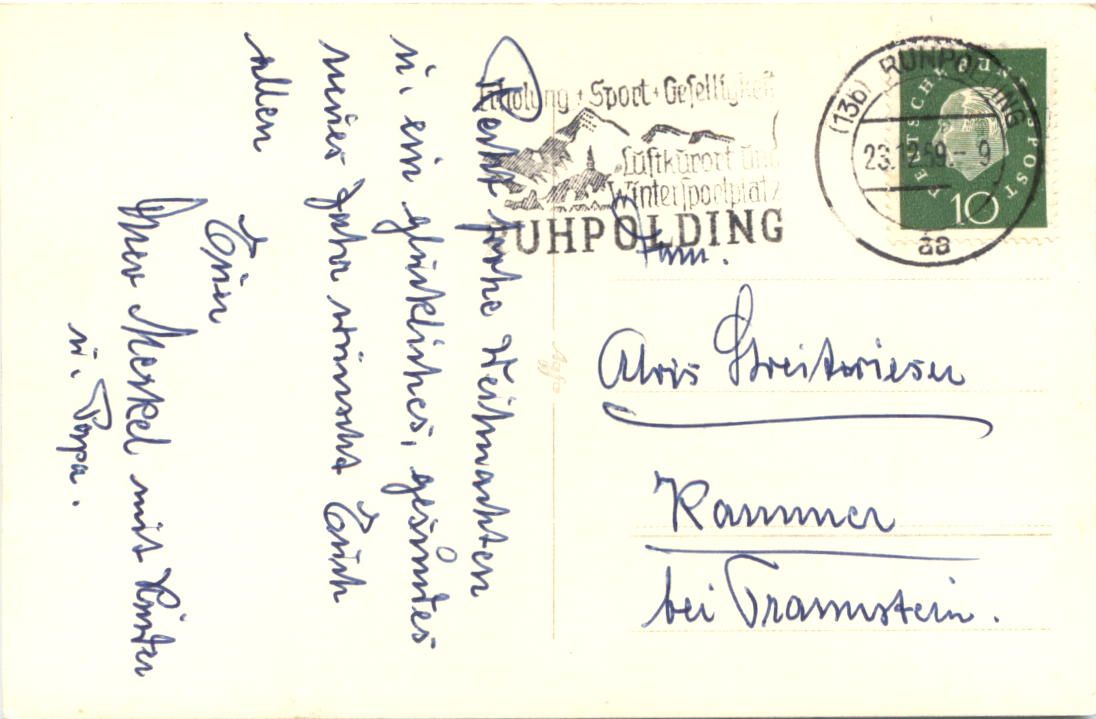 Recht frohe Weihnachten
u. ein glückliches, gesundes
neues Jahr wünscht Euch
allen
Euer
Merkel mit Kinder
u. Papa.
Erholung + Sport + Geselligkeit
Luftkurort und
Wintersportplatz
RUHPOLDING
(13b) RUHPOLDING
23.12.59.- 9
aa
DEUTSCHE BUNDESPOST
10
Fam.
Alois Streitwieser
Kammer
bei Traunstein.
Agfa